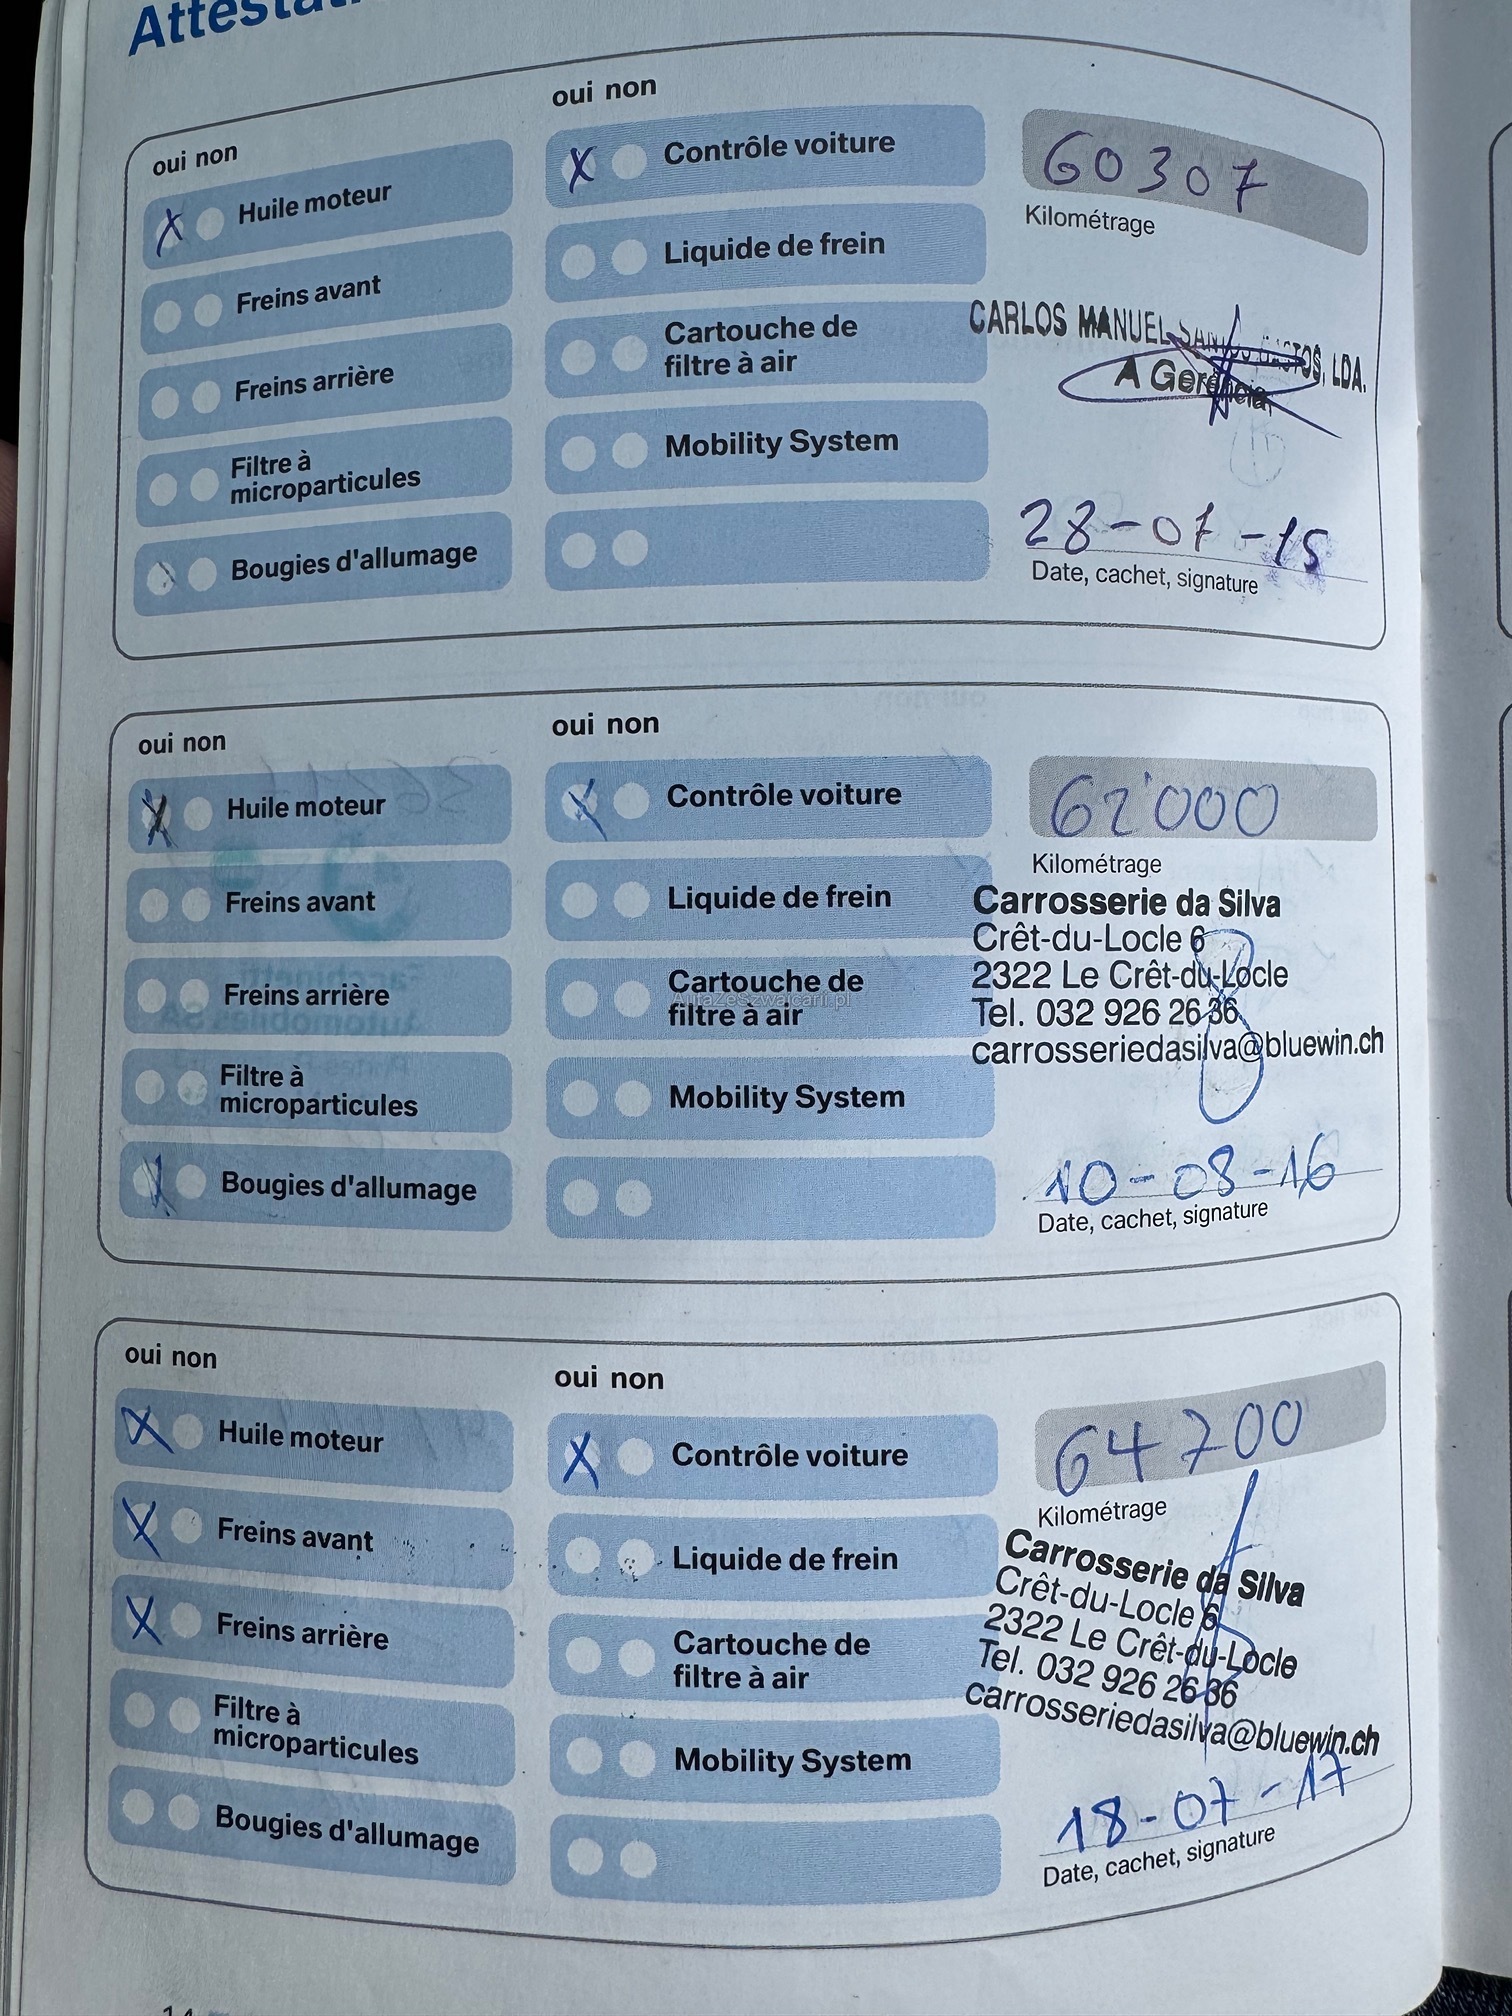 oui non
oui non
Huile moteur
Freins avant
Freins arrière
Filtre à
microparticules
Bougies d'allumage
Contrôle voiture
Liquide de frein
Cartouche de
filtre à air
Mobility System
60307
Kilométrage
CARLOS MANUEL SANTOS LDA.
A Gerência
28-07-15
Date, cachet, signature
oui non
oui non
Huile moteur
Freins avant
Freins arrière
Filtre à
microparticules
Bougies d'allumage
Contrôle voiture
Liquide de frein
Cartouche de
AutaZeSzwajcarii.pl
filtre à air
Mobility System
62'000
Kilométrage
Carrosserie da Silva
Crêt-du-Locle 6
2322 Le Crêt-du-Locle
Tel. 032 926 26 36
carrosseriedasilva@bluewin.ch
10-08-16
Date, cachet, signature
oui non
oui non
Huile moteur
Freins avant
Freins arrière
Filtre à
microparticules
Bougies d'allumage
Contrôle voiture
Liquide de frein
Cartouche de
filtre à air
Mobility System
64700
Kilométrage
Carrosserie da Silva
Crêt-du-Locle 6
2322 Le Crêt-du-Locle
Tel. 032 926 26 36
carrosseriedasilva@bluewin.ch
18-07-17
Date, cachet, signature
14